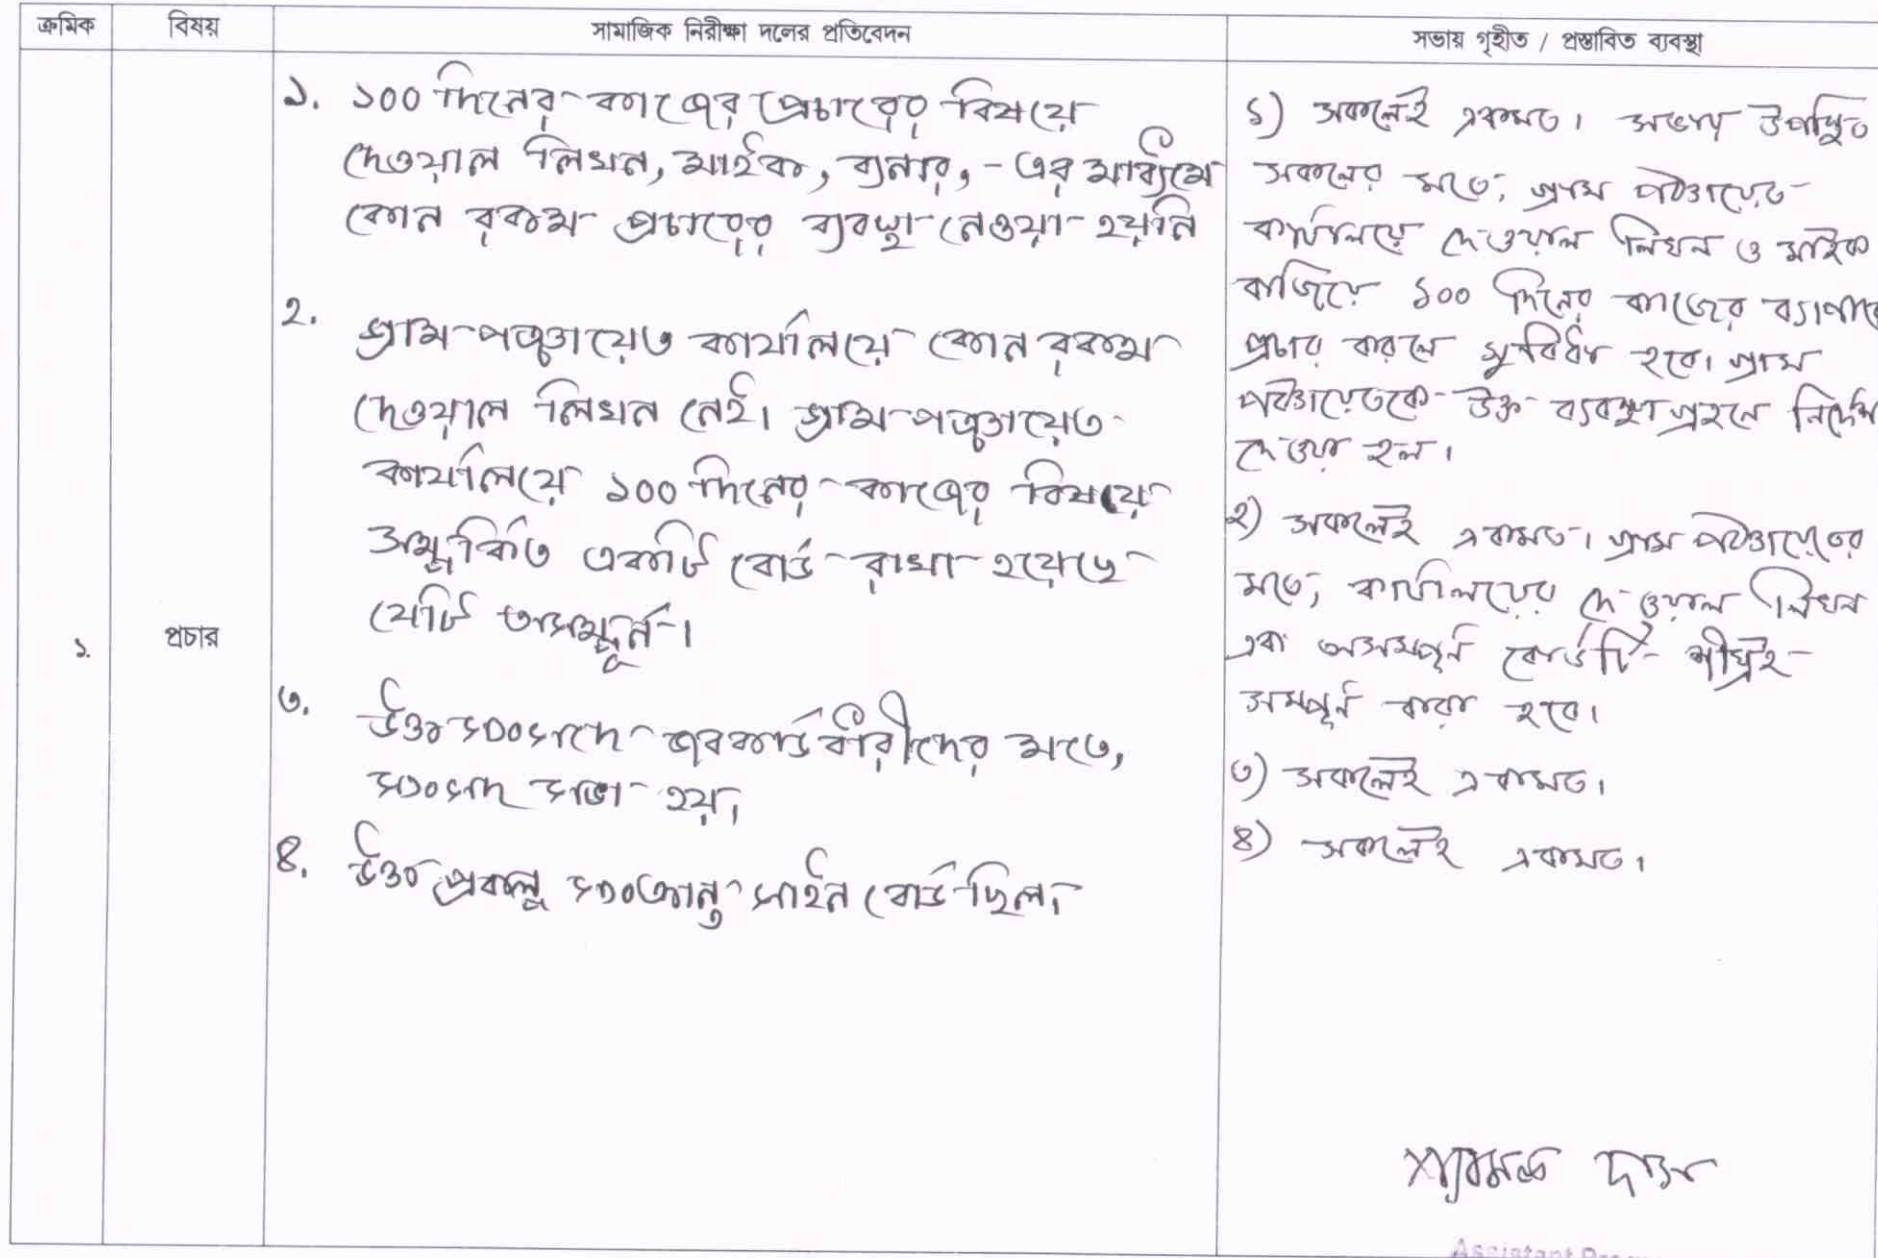 ক্রমিক
বিষয়
সামাজিক নিরীক্ষা দলের প্রতিবেদন
সভায় গৃহীত / প্রস্তাবিত ব্যবস্থা
১.
প্রচার
১. ১০০ দিনের কাজের প্রচারের বিষয়ে
দেওয়াল লিখন, মাইক, ব্যনার, - এর মাধ্যমে
কোন রকম প্রচারের ব্যবস্থা নেওয়া হয়নি
২. গ্রাম পঞ্চায়েত কার্যালয়ে কোন রকম
দেওয়াল লিখন নেই। গ্রাম পঞ্চায়েত
কার্যালয়ে ১০০ দিনের কাজের বিষয়ে
সম্পর্কিত একটি বোর্ড রাখা হয়েছে
যেটি অসম্পূর্ন।
৩. উক্ত সংসদে জবকার্ডধারীদের মতে,
সংসদ সভা হয়।
৪. উক্ত প্রকল্প সংক্রান্ত সাইন বোর্ড ছিল।
১) সকলেই একমত। সভায় উপস্থিত
সকলের মতে, গ্রাম পঞ্চায়েত
কার্যালয়ে দেওয়াল লিখন ও মাইক
বাজিয়ে ১০০ দিনের কাজের ব্যাপারে
প্রচার করলে সুবিধা হবে। গ্রাম
পঞ্চায়েতকে উক্ত ব্যবস্থা গ্রহনে নির্দেশ
দেওয়া হল।
২) সকলেই একমত। গ্রাম পঞ্চায়েতের
মতে, কার্যালয়ের দেওয়াল লিখন
এবং অসম্পূর্ন বোর্ডটি শীঘ্রই
সম্পূর্ন করা হবে।
৩) সকলেই একমত।
৪) সকলেই একমত।
দাস
Assistant